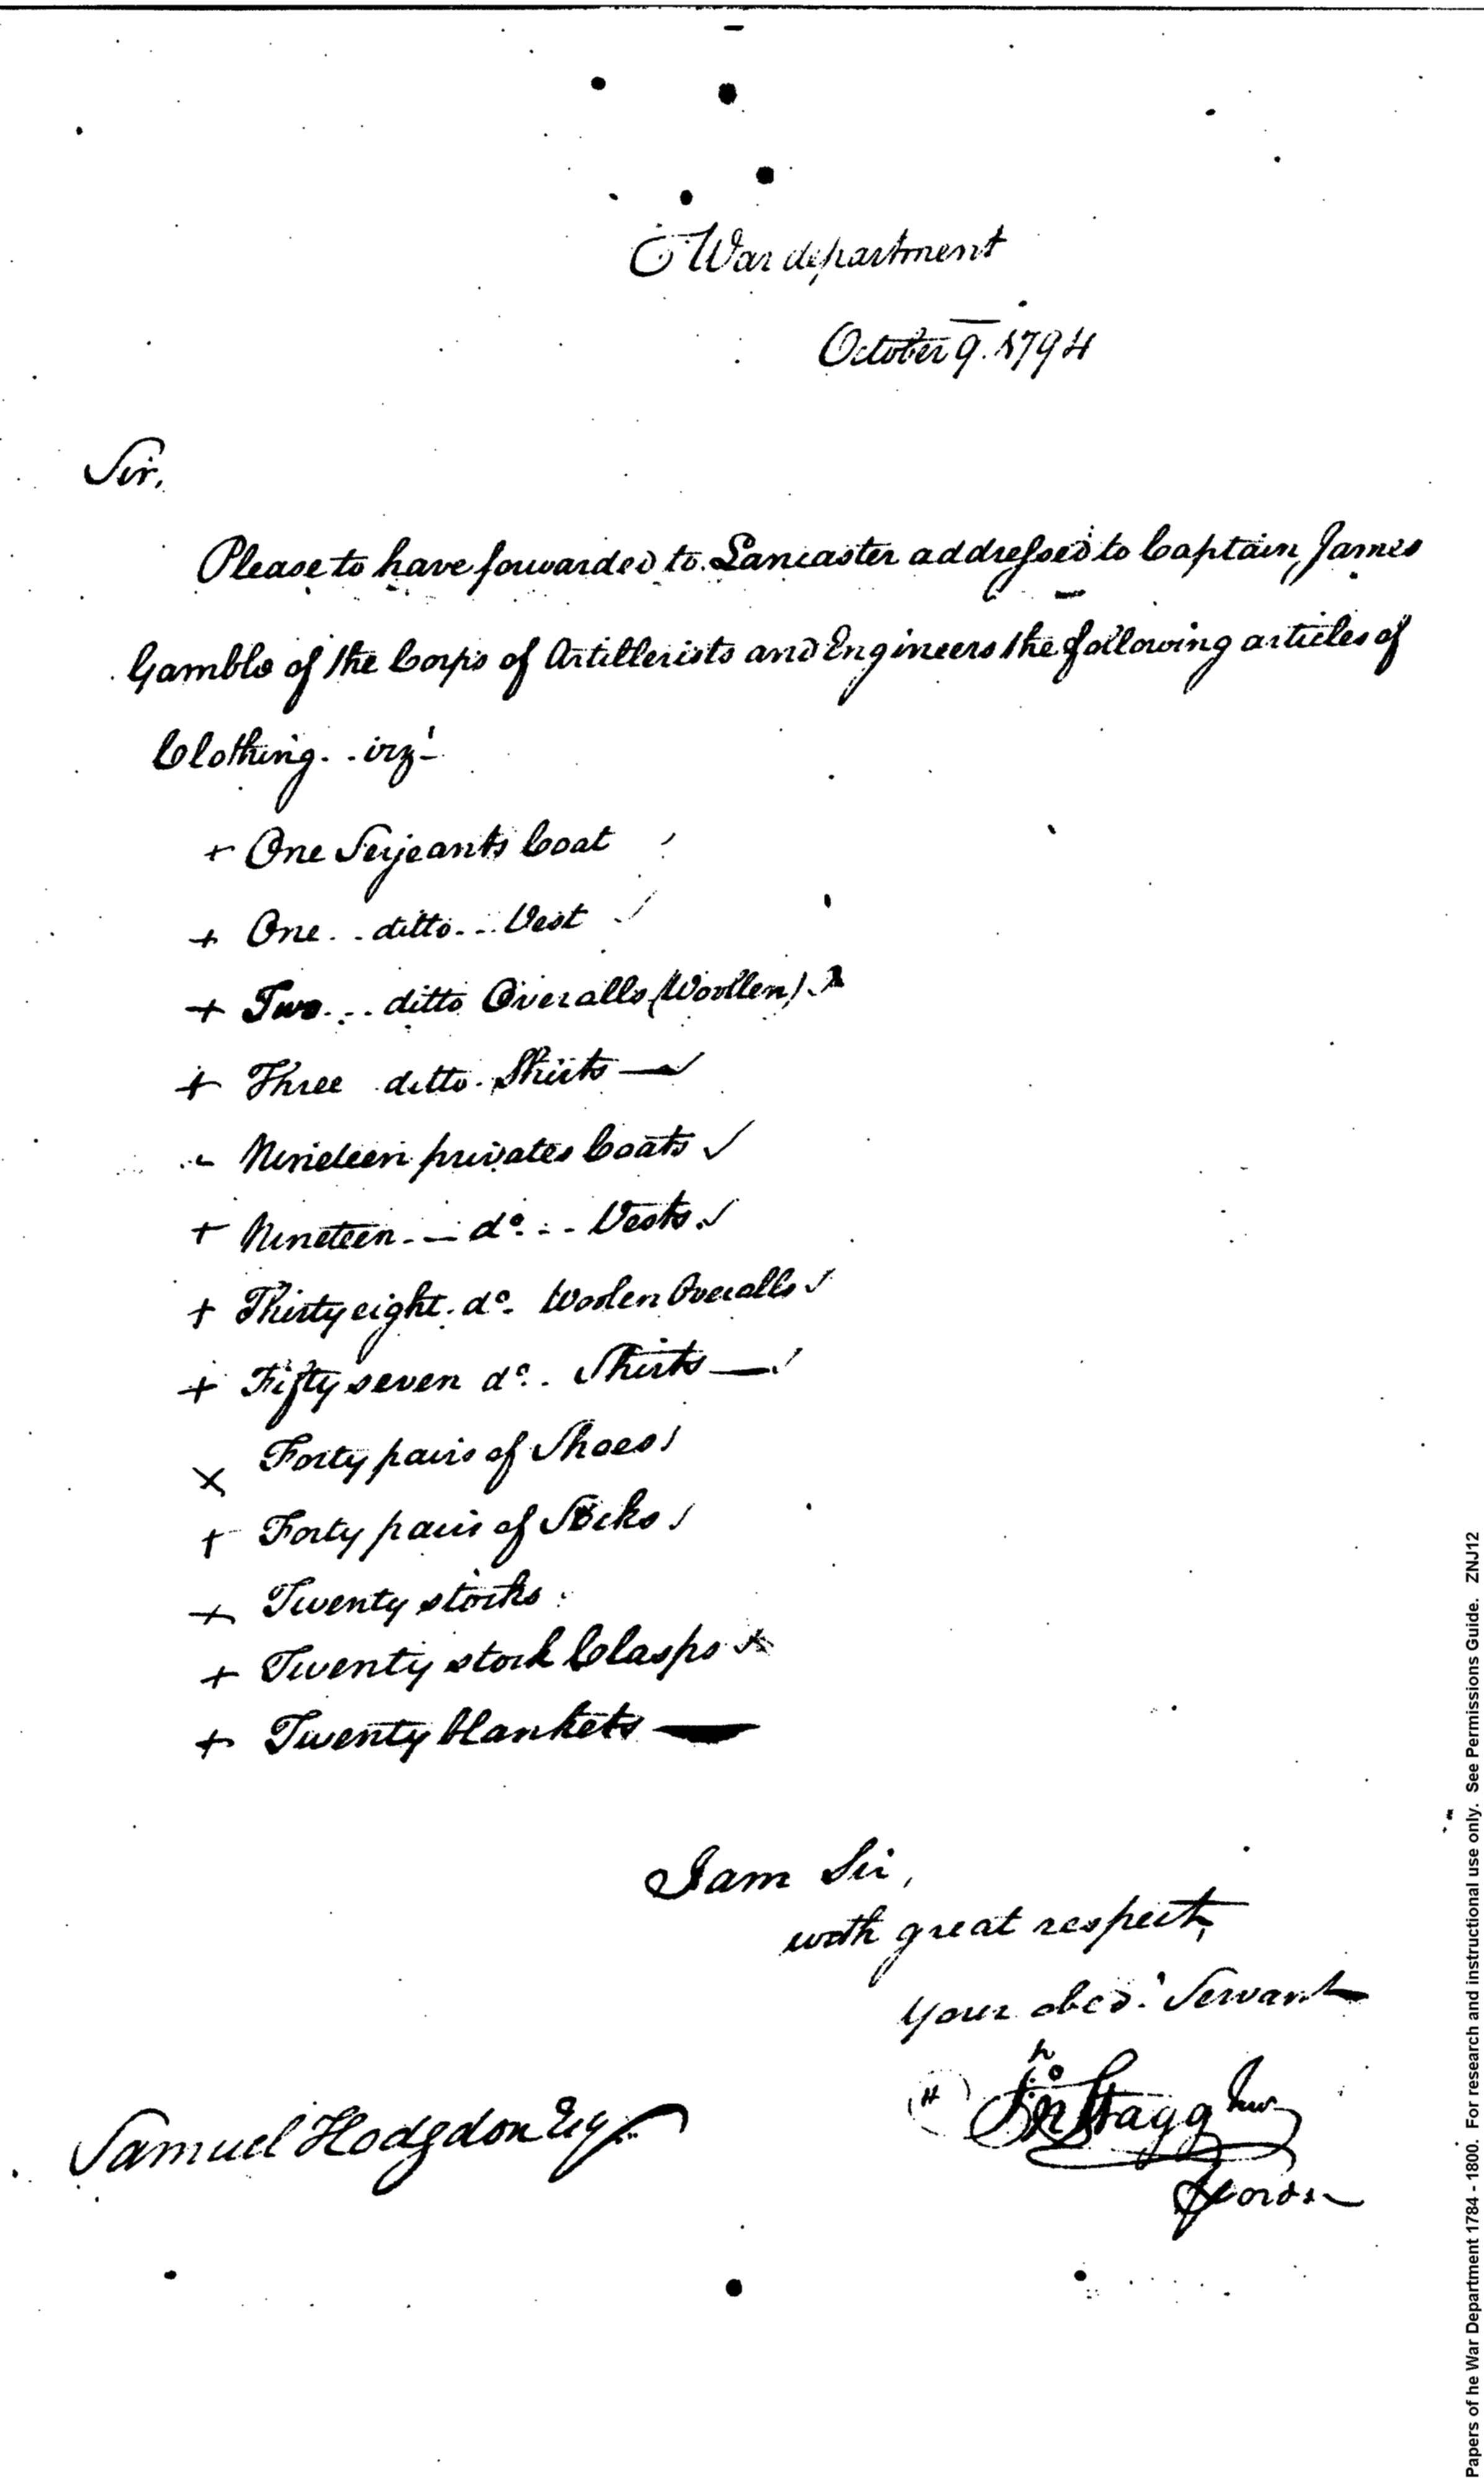 War department
October 9. 1794
Sir,
Please to have forwarded to Lancaster addressed to Captain James
Gamble of the Corps of Artillerists and Engineers the following articles of
Clothing.. viz!
+ One Serjeants Coat
+ One... ditto... Vest ✓
+ Two.... ditto Overalls (Woollen)
+ Three ditto. Shirts — ✓
Nineteen privates Coats ✓
+ Nineteen. — do. .. Vests. ✓
+ Thirty eight. do. Woolen Overalls ✓
+ Fifty seven do.. Shirts — ✓
x Forty pairs of Shoes
+ Forty pairs of Socks
+ Twenty stocks
+ Twenty stock Clasps
+ Twenty blankets —
I am Sir,
with great respect,
your obed. Servant
Jno Stagg Junr
Samuel Hodgdon Esqr
Papers of he War Department 1784 - 1800. For research and instructional use only. See Permissions Guide. ZNJ12